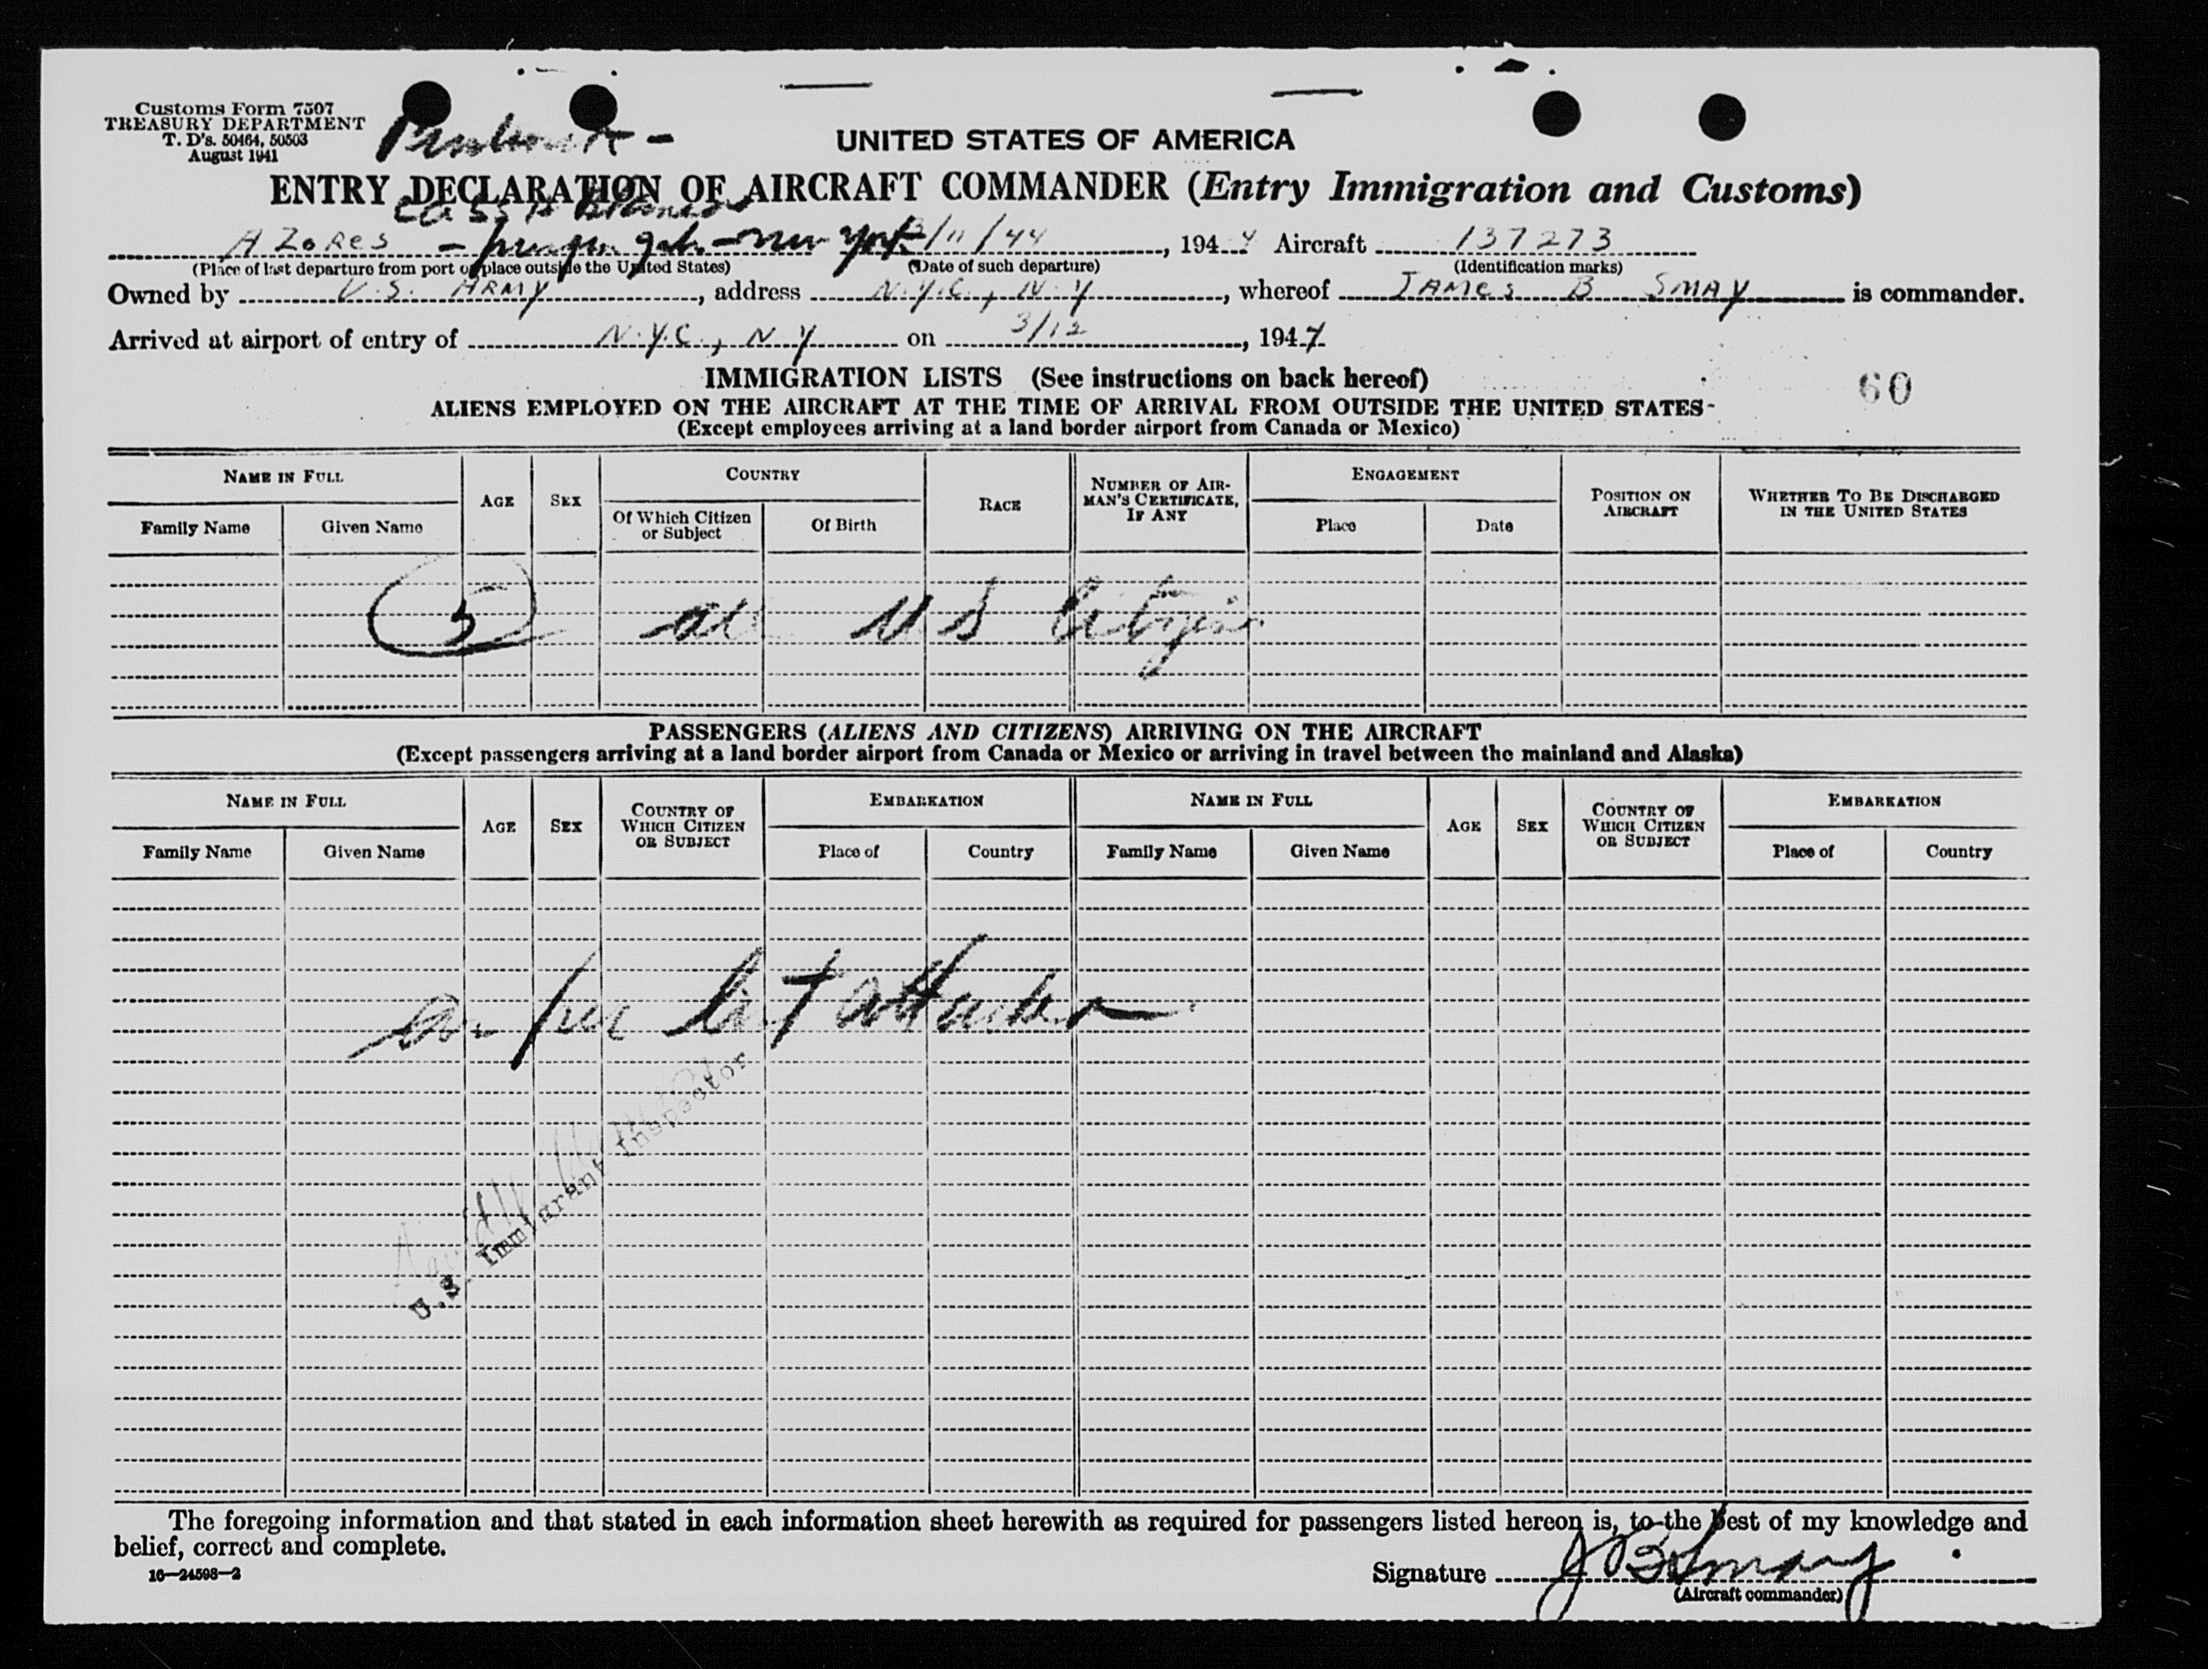 Customs Form 7507
TREASURY DEPARTMENT
T. D's. 50464, 50503
August 1941
UNITED STATES OF AMERICA
ENTRY DECLARATION OF AIRCRAFT COMMANDER (Entry Immigration and Customs)
AZORES - New York 3/11/44, 1944 Aircraft 137273
(Place of last departure from port or place outside the United States) (Date of such departure) (Identification marks)
Owned by U.S. ARMY, address N.Y.C., N.Y, whereof JAMES B SMAY is commander.
Arrived at airport of entry of N.Y.C., N.Y on 3/12, 1944
IMMIGRATION LISTS (See instructions on back hereof)
60
ALIENS EMPLOYED ON THE AIRCRAFT AT THE TIME OF ARRIVAL FROM OUTSIDE THE UNITED STATES
(Except employees arriving at a land border airport from Canada or Mexico)
NAME IN FULL AGE SEX COUNTRY RACE NUMBER OF AIRMAN'S CERTIFICATE, IF ANY ENGAGEMENT POSITION ON AIRCRAFT WHETHER TO BE DISCHARGED IN THE UNITED STATES
Family Name Given Name Of Which Citizen or Subject Of Birth Place Date
5 all U S Citizens
PASSENGERS (ALIENS AND CITIZENS) ARRIVING ON THE AIRCRAFT
(Except passengers arriving at a land border airport from Canada or Mexico or arriving in travel between the mainland and Alaska)
NAME IN FULL AGE SEX COUNTRY OF WHICH CITIZEN OR SUBJECT EMBARKATION NAME IN FULL AGE SEX COUNTRY OF WHICH CITIZEN OR SUBJECT EMBARKATION
Family Name Given Name Place of Country Family Name Given Name Place of Country
as per list attached
U.S. Immigrant Inspector
The foregoing information and that stated in each information sheet herewith as required for passengers listed hereon is, to the best of my knowledge and
belief, correct and complete.
16—24598-2
Signature J B Smay
(Aircraft commander)